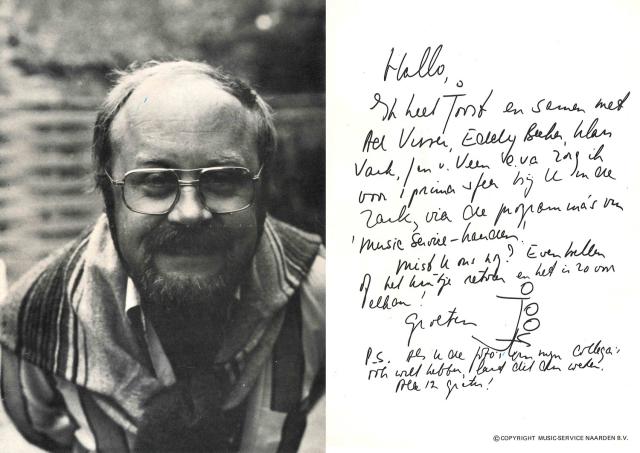 Hallo,
Ik heet Joost en samen met
Ad Visser, Eddy Becker, Klaas
Vaak, Jan v. Veen e.v.a. zorg ik
voor 'n prima sfeer bij U in de
zaak, via de programma's van
'Music Service-Naarden'.
Mist U ons nog? Even bellen
of het kaartje retour en het is zo voor
elkaar!
Groeten
JOOS
P.S. Als U de foto's van mijn collega's
ook wilt hebben, laat dit dan weten.
Alle 12 gratis!
©COPYRIGHT MUSIC-SERVICE NAARDEN B.V.